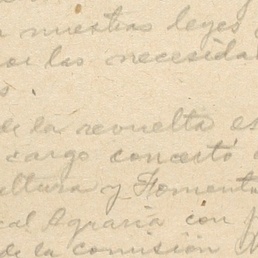 nuestras leyes
las necesida
s.
de la revuelta es
cargo concertó
ultura y Foment
cal Agraria con
de la comisión